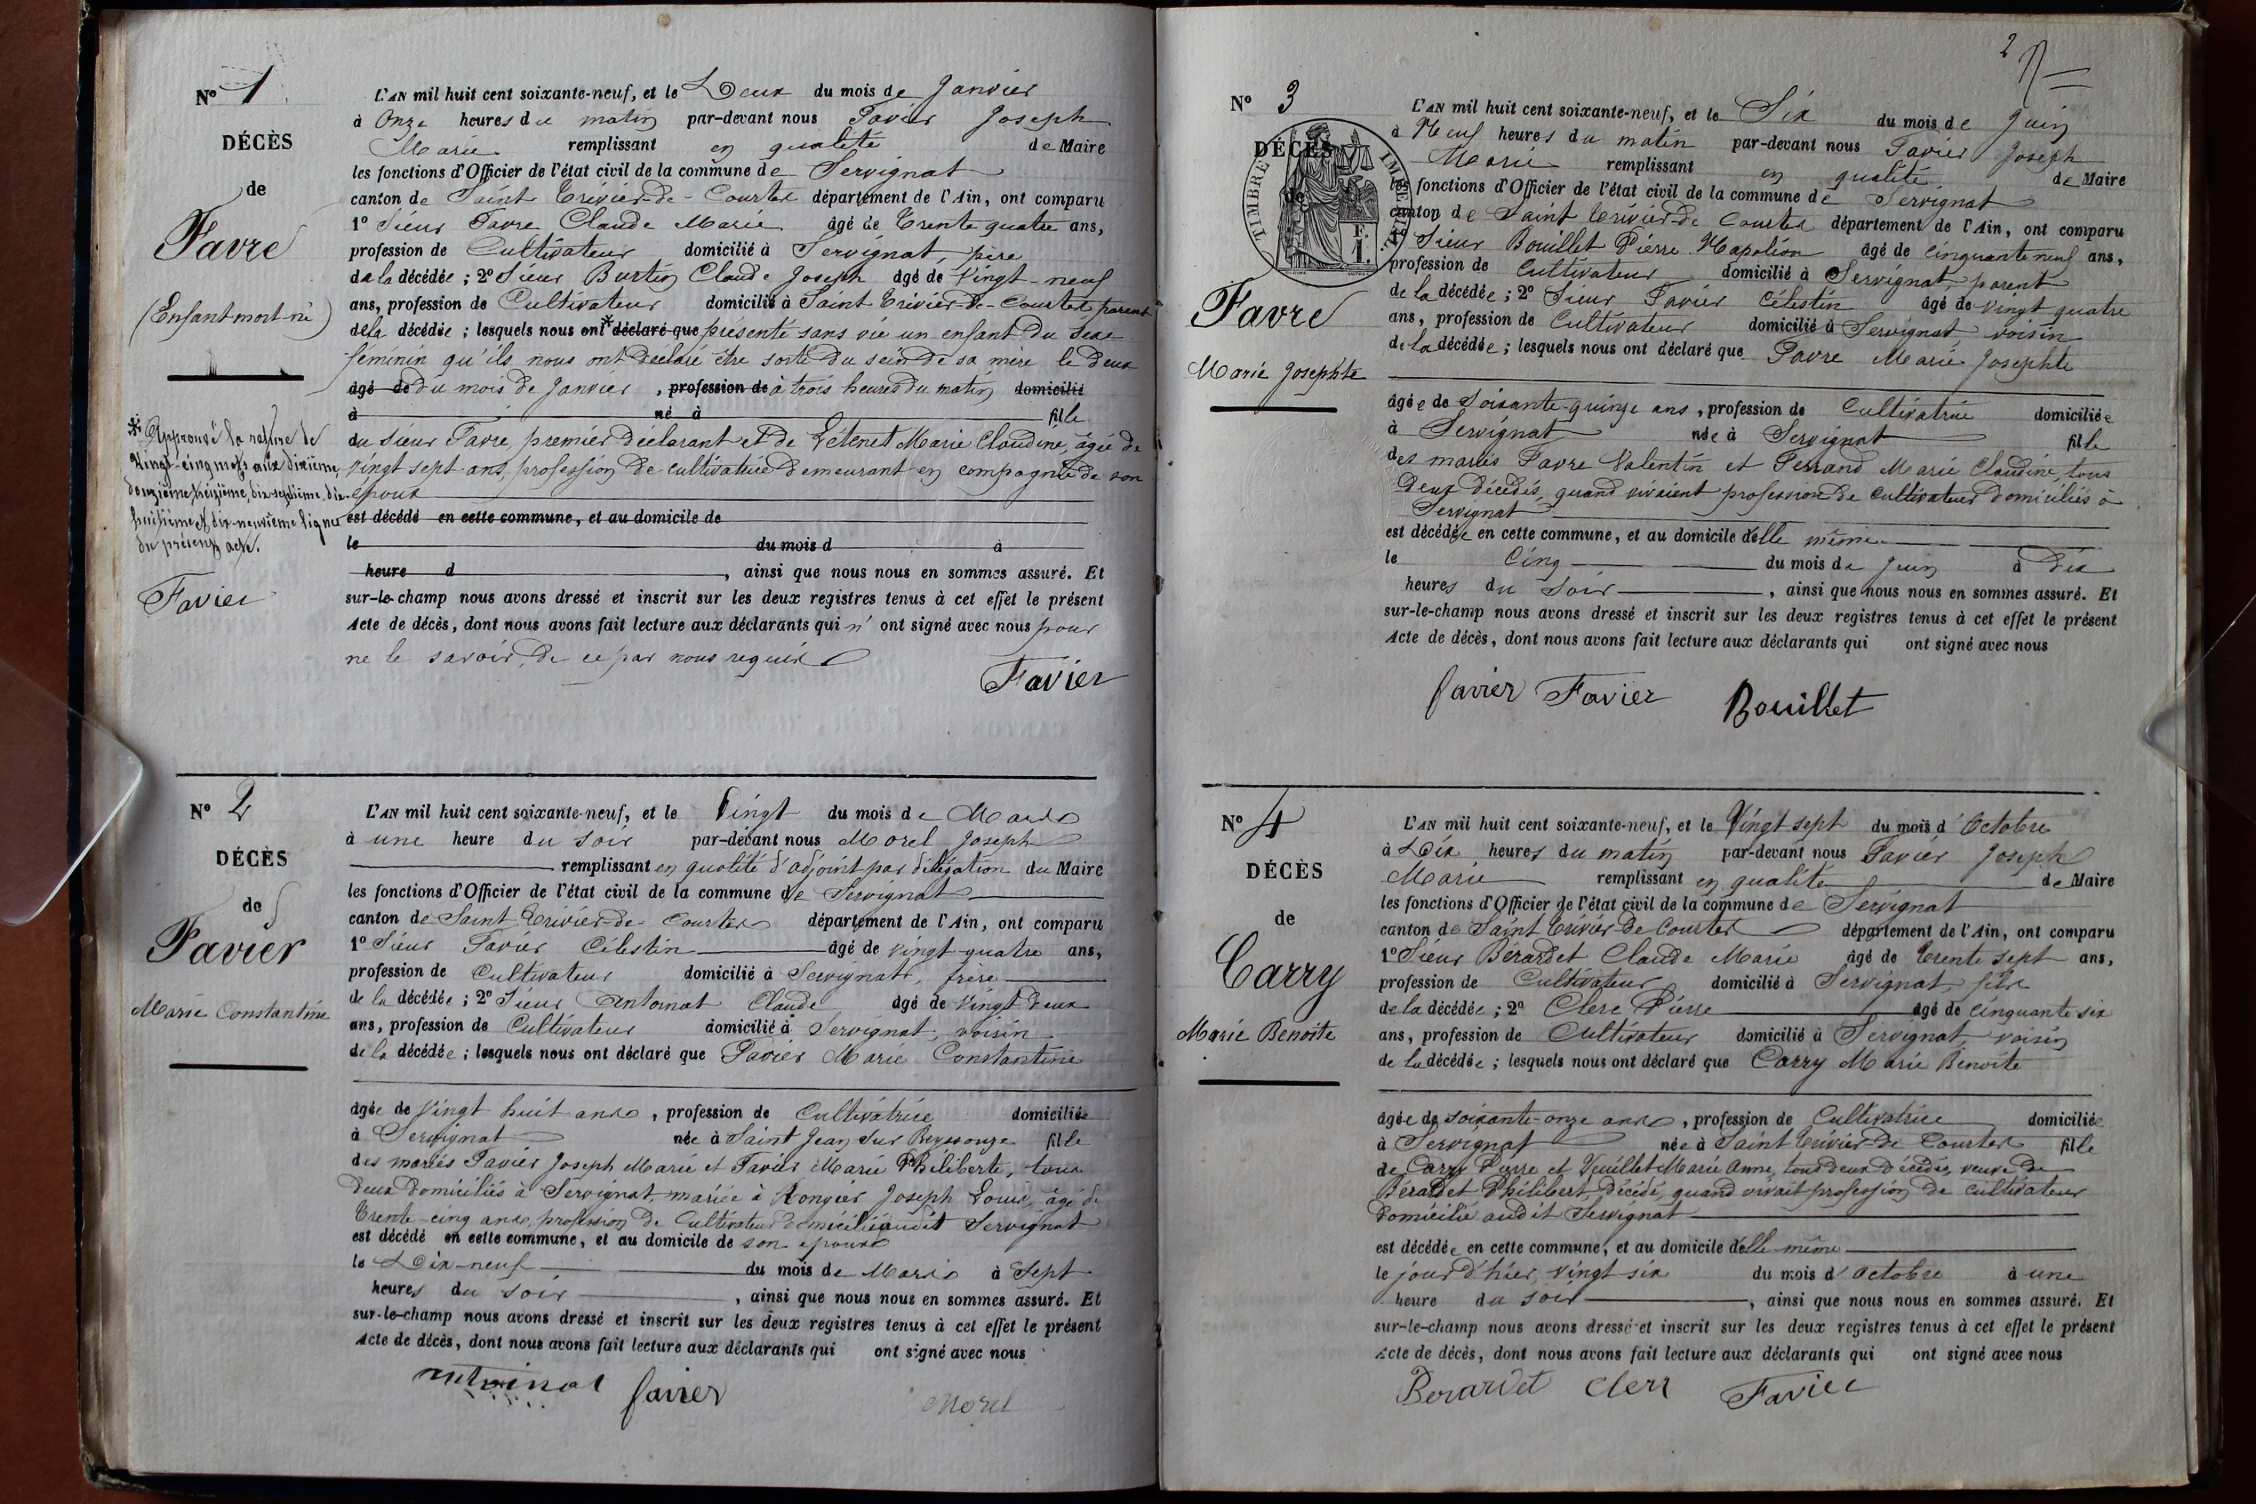 N° 1
DÉCÈS
de
Favre
(Enfant mort-né)
* Approuvé la rature de
vingt-cinq mots aux dixième,
douzième, treizième, dix-septième, dix-
huitième et dix-neuvième lignes
du présent acte.
Favier
L'AN mil huit cent soixante-neuf, et le Deux du mois de Janvier
à Onze heures du matin par-devant nous Favier Joseph
Marie remplissant en qualité de Maire
les fonctions d'Officier de l'état civil de la commune de Servignat
canton de Saint Trivier-de-Courtes département de l'Ain, ont comparu
1° Sieur Favre Claude Marie âgé de Trente quatre ans,
profession de Cultivateur domicilié à Servignat, père
de la décédée ; 2° Sieur Burtin Claude Joseph âgé de Vingt-neuf
ans, profession de Cultivateur domicilié à Saint Trivier-de-Courtes, parent
de la décédée ; lesquels nous ont * déclaré que présenté sans vie un enfant du sexe
féminin qu'ils nous ont déclaré être sorti du sein de sa mère le deux
âgé de du mois de Janvier , profession de à trois heures du matin domicilié
à né à fille
du sieur Favre, premier déclarant et de Létenet Marie Claudine, âgée de
vingt sept ans, profession de cultivatrice demeurant en compagnie de son
époux
est décédé en cette commune, et au domicile de
le du mois d à
heure d , ainsi que nous nous en sommes assuré. Et
sur-le-champ nous avons dressé et inscrit sur les deux registres tenus à cet effet le présent
Acte de décès, dont nous avons fait lecture aux déclarants qui n' ont signé avec nous pour
ne le savoir, de ce par nous requis
Favier
N° 2
DÉCÈS
de
Favier
Marie Constantine
L'AN mil huit cent soixante-neuf, et le Vingt du mois de Mars
à une heure du soir par-devant nous Morel Joseph
remplissant en qualité d'adjoint par délégation du Maire
les fonctions d'Officier de l'état civil de la commune de Servignat
canton de Saint Trivier-de-Courtes département de l'Ain, ont comparu
1° Sieur Favier Célestin âgé de vingt-quatre ans,
profession de Cultivateur domicilié à Servignat, frère
de la décédée ; 2° Sieur Antoinat Claude âgé de vingt deux
ans, profession de Cultivateur domicilié à Servignat, voisin
de la décédée ; lesquels nous ont déclaré que Favier Marie Constantine
âgée de vingt huit ans , profession de Cultivatrice domiciliée
à Servignat née à Saint Jean sur Reyssouze fille
des mariés Favier Joseph Marie et Favier Marie Philiberte, tous
deux domiciliés à Servignat, mariée à Rongier Joseph Louis, âgé de
Trente-cinq ans, profession de Cultivateur domicilié audit Servignat
est décédé en cette commune, et au domicile de son époux
le Dix-neuf du mois de Mars à Sept
heures du soir , ainsi que nous nous en sommes assuré. Et
sur-le-champ nous avons dressé et inscrit sur les deux registres tenus à cet effet le présent
Acte de décès, dont nous avons fait lecture aux déclarants qui ont signé avec nous
antoinat favier Morel
2
N° 3
DÉCÈS
de
TIMBRE IMPÉRIAL
F.
1.
Favre
Marie Josephte
L'AN mil huit cent soixante-neuf, et le Six du mois de Juin
à Neuf heures du matin par-devant nous Favier Joseph
Marie remplissant en qualité de Maire
les fonctions d'Officier de l'état civil de la commune de Servignat
canton de Saint Trivier-de-Courtes département de l'Ain, ont comparu
1° Sieur Bouillet Pierre Napoléon âgé de cinquante neuf ans,
profession de Cultivateur domicilié à Servignat, parent
de la décédée ; 2° Sieur Favier Célestin âgé de vingt quatre
ans, profession de Cultivateur domicilié à Servignat, voisin
de la décédée ; lesquels nous ont déclaré que Favre Marie Josephte
âgée de soixante-quinze ans , profession de Cultivatrice domiciliée
à Servignat née à Servignat fille
des mariés Favre Valentin et Ferrand Marie Claudine, tous
deux décédés, quand vivaient profession de cultivateurs domiciliés à
Servignat
est décédée en cette commune, et au domicile d'elle même
le Cinq du mois de Juin à Dix
heures du Soir , ainsi que nous nous en sommes assuré. Et
sur-le-champ nous avons dressé et inscrit sur les deux registres tenus à cet effet le présent
Acte de décès, dont nous avons fait lecture aux déclarants qui ont signé avec nous
favier Favier Bouillet
N° 4
DÉCÈS
de
Carry
Marie Benoite
L'AN mil huit cent soixante-neuf, et le Vingt sept du mois d'Octobre
à Dix heures du matin par-devant nous Favier Joseph
Marie remplissant en qualité de Maire
les fonctions d'Officier de l'état civil de la commune de Servignat
canton de Saint Trivier-de-Courtes département de l'Ain, ont comparu
1° Sieur Bérardet Claude Marie âgé de Trente sept ans,
profession de Cultivateur domicilié à Servignat, fils
de la décédée ; 2° Clerc Pierre âgé de cinquante six
ans, profession de Cultivateur domicilié à Servignat, voisin
de la décédée ; lesquels nous ont déclaré que Carry Marie Benoite
âgée de soixante-onze ans , profession de Cultivatrice domiciliée
à Servignat née à Saint Trivier-de-Courtes fille
de Carry Pierre et Vuillet Marie Anne, tous deux décédés, veuve de
Bérardet Philibert, décédé, quand vivait profession de cultivateur
domicilié audit Servignat
est décédée en cette commune, et au domicile d'elle même
le jour d'hier, vingt six du mois d'Octobre à une
heure du soir , ainsi que nous nous en sommes assuré. Et
sur-le-champ nous avons dressé et inscrit sur les deux registres tenus à cet effet le présent
Acte de décès, dont nous avons fait lecture aux déclarants qui ont signé avec nous
Berardet Clerc Favier